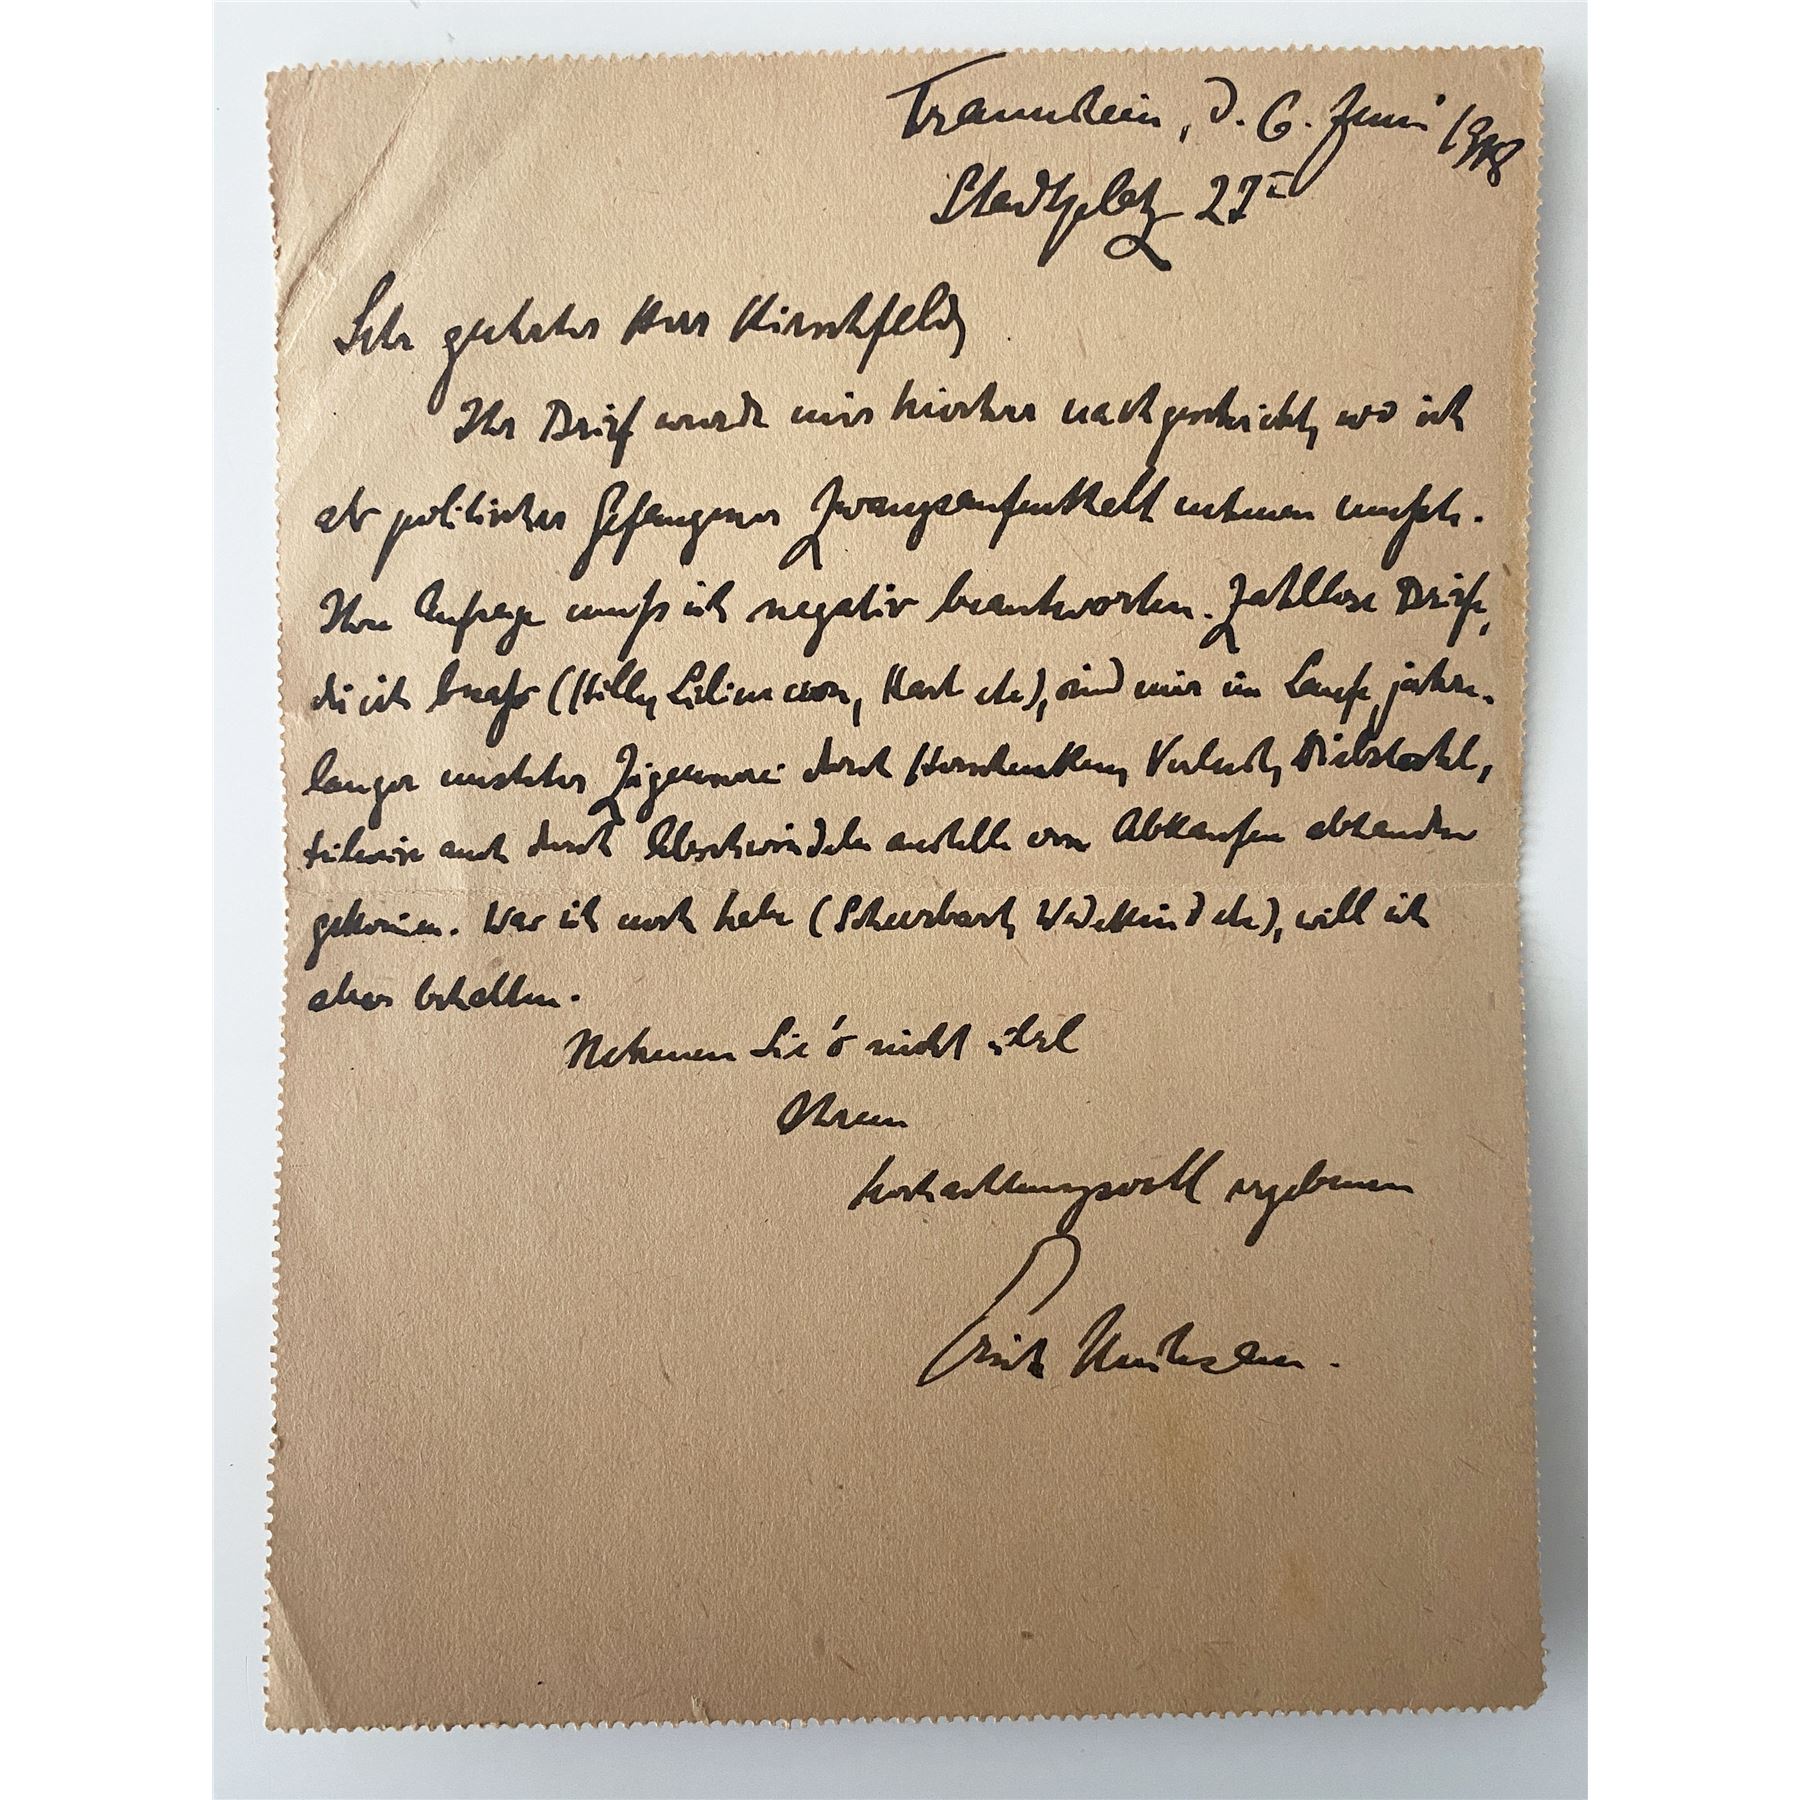 Traunstein, d. 6. Juni 1918
Stadtplatz 27 I
Sehr geehrter Herr Hirschfeld,
Ihr Brief wurde mir hierher nachgeschickt, wo ich
als politischer Gefangener Zwangsaufenthalt nehmen mußte.
Ihre Anfrage muß ich negativ beantworten. Zahllose Briefe,
die ich besaß (Hille, Liliencron, Hart etc), sind mir im Laufe jahre-
langer unsteter Zigeunerei durch Herschenken, Verlust, Diebstahl,
teilweise auch durch Abschwindeln anstelle von Abkaufen abhanden
gekommen. Was ich noch habe (Scheerbart, Wedekind etc), will ich
aber behalten.
Nehmen Sie's nicht übel
Ihrem
hochachtungsvoll ergebenen
Erich Mühsam.